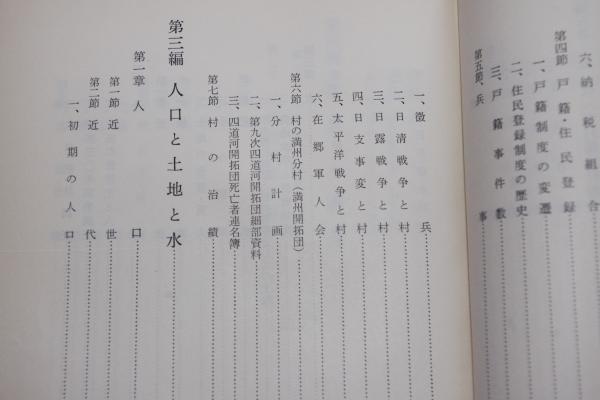 六、納税組合
第四節 戸籍・住民登録
一、戸籍制度の変遷
二、住民登録制度の歴史
三、戸籍事件数
第五節、兵事
一、徴兵
二、日清戦争と村
三、日露戦争と村
四、日支事変と村
五、太平洋戦争と村
六、在郷軍人会
第六節 村の満州分村（満州開拓団）
一、分村計画
二、第九次四道河開拓団細部資料
三、四道河開拓団死亡者連名簿
第七節 村の治績
第三編 人口と土地と水
第一章 人口
第一節 近世
第二節 近代
一、初期の人口